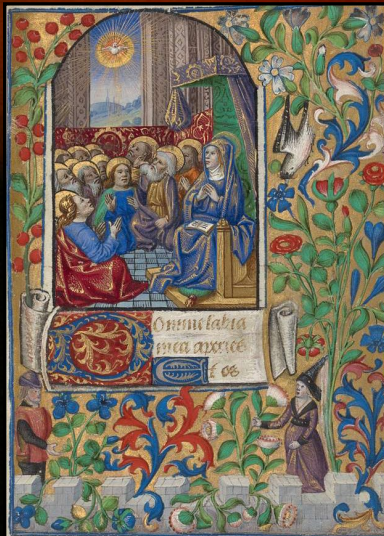 Domine labia
mea aperies
Et os